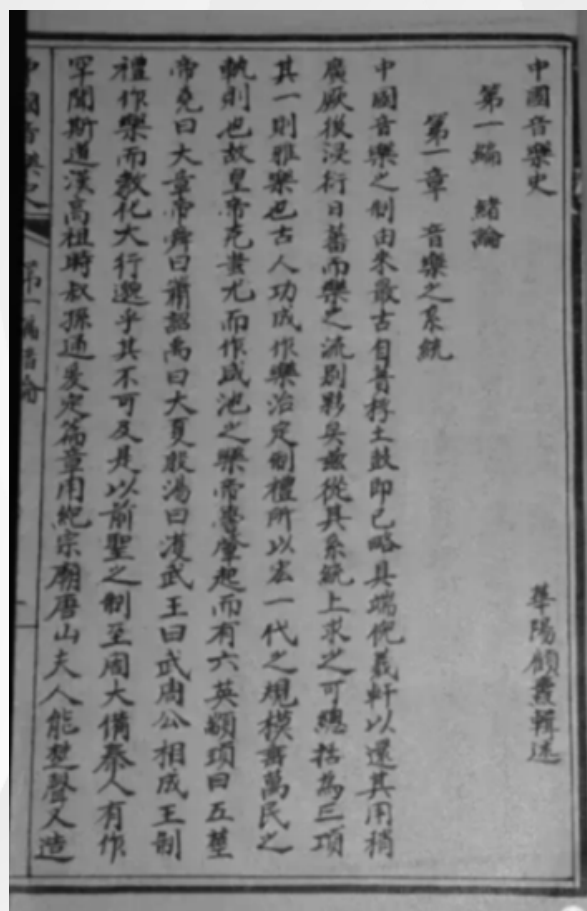 中國音樂史
華陽顧䕫輯述
第一編 緒論
第一章 音樂之系統
中國音樂之制由來最古自蕢桴土鼓即已略具端倪羲軒以還其用稍
廣厥後浸衍日蕃而樂之流別夥矣茲從其系統上求之可總括為三項
其一則雅樂也古人功成作樂治定制禮所以宏一代之規模垂萬民之
軌則也故皇帝克蚩尤而作咸池之樂帝嚳肇起而有六英顓頊曰五莖
帝堯曰大章帝舜曰簫韶禹曰大夏殷湯曰濩武王曰武周公相成王制
禮作樂而教化大行邈乎其不可及是以前聖之制至周大備秦人有作
罕聞斯道漢高祖時叔孫通爰定篇章用祀宗廟唐山夫人能楚聲又造
中國音樂史 第一編緒論